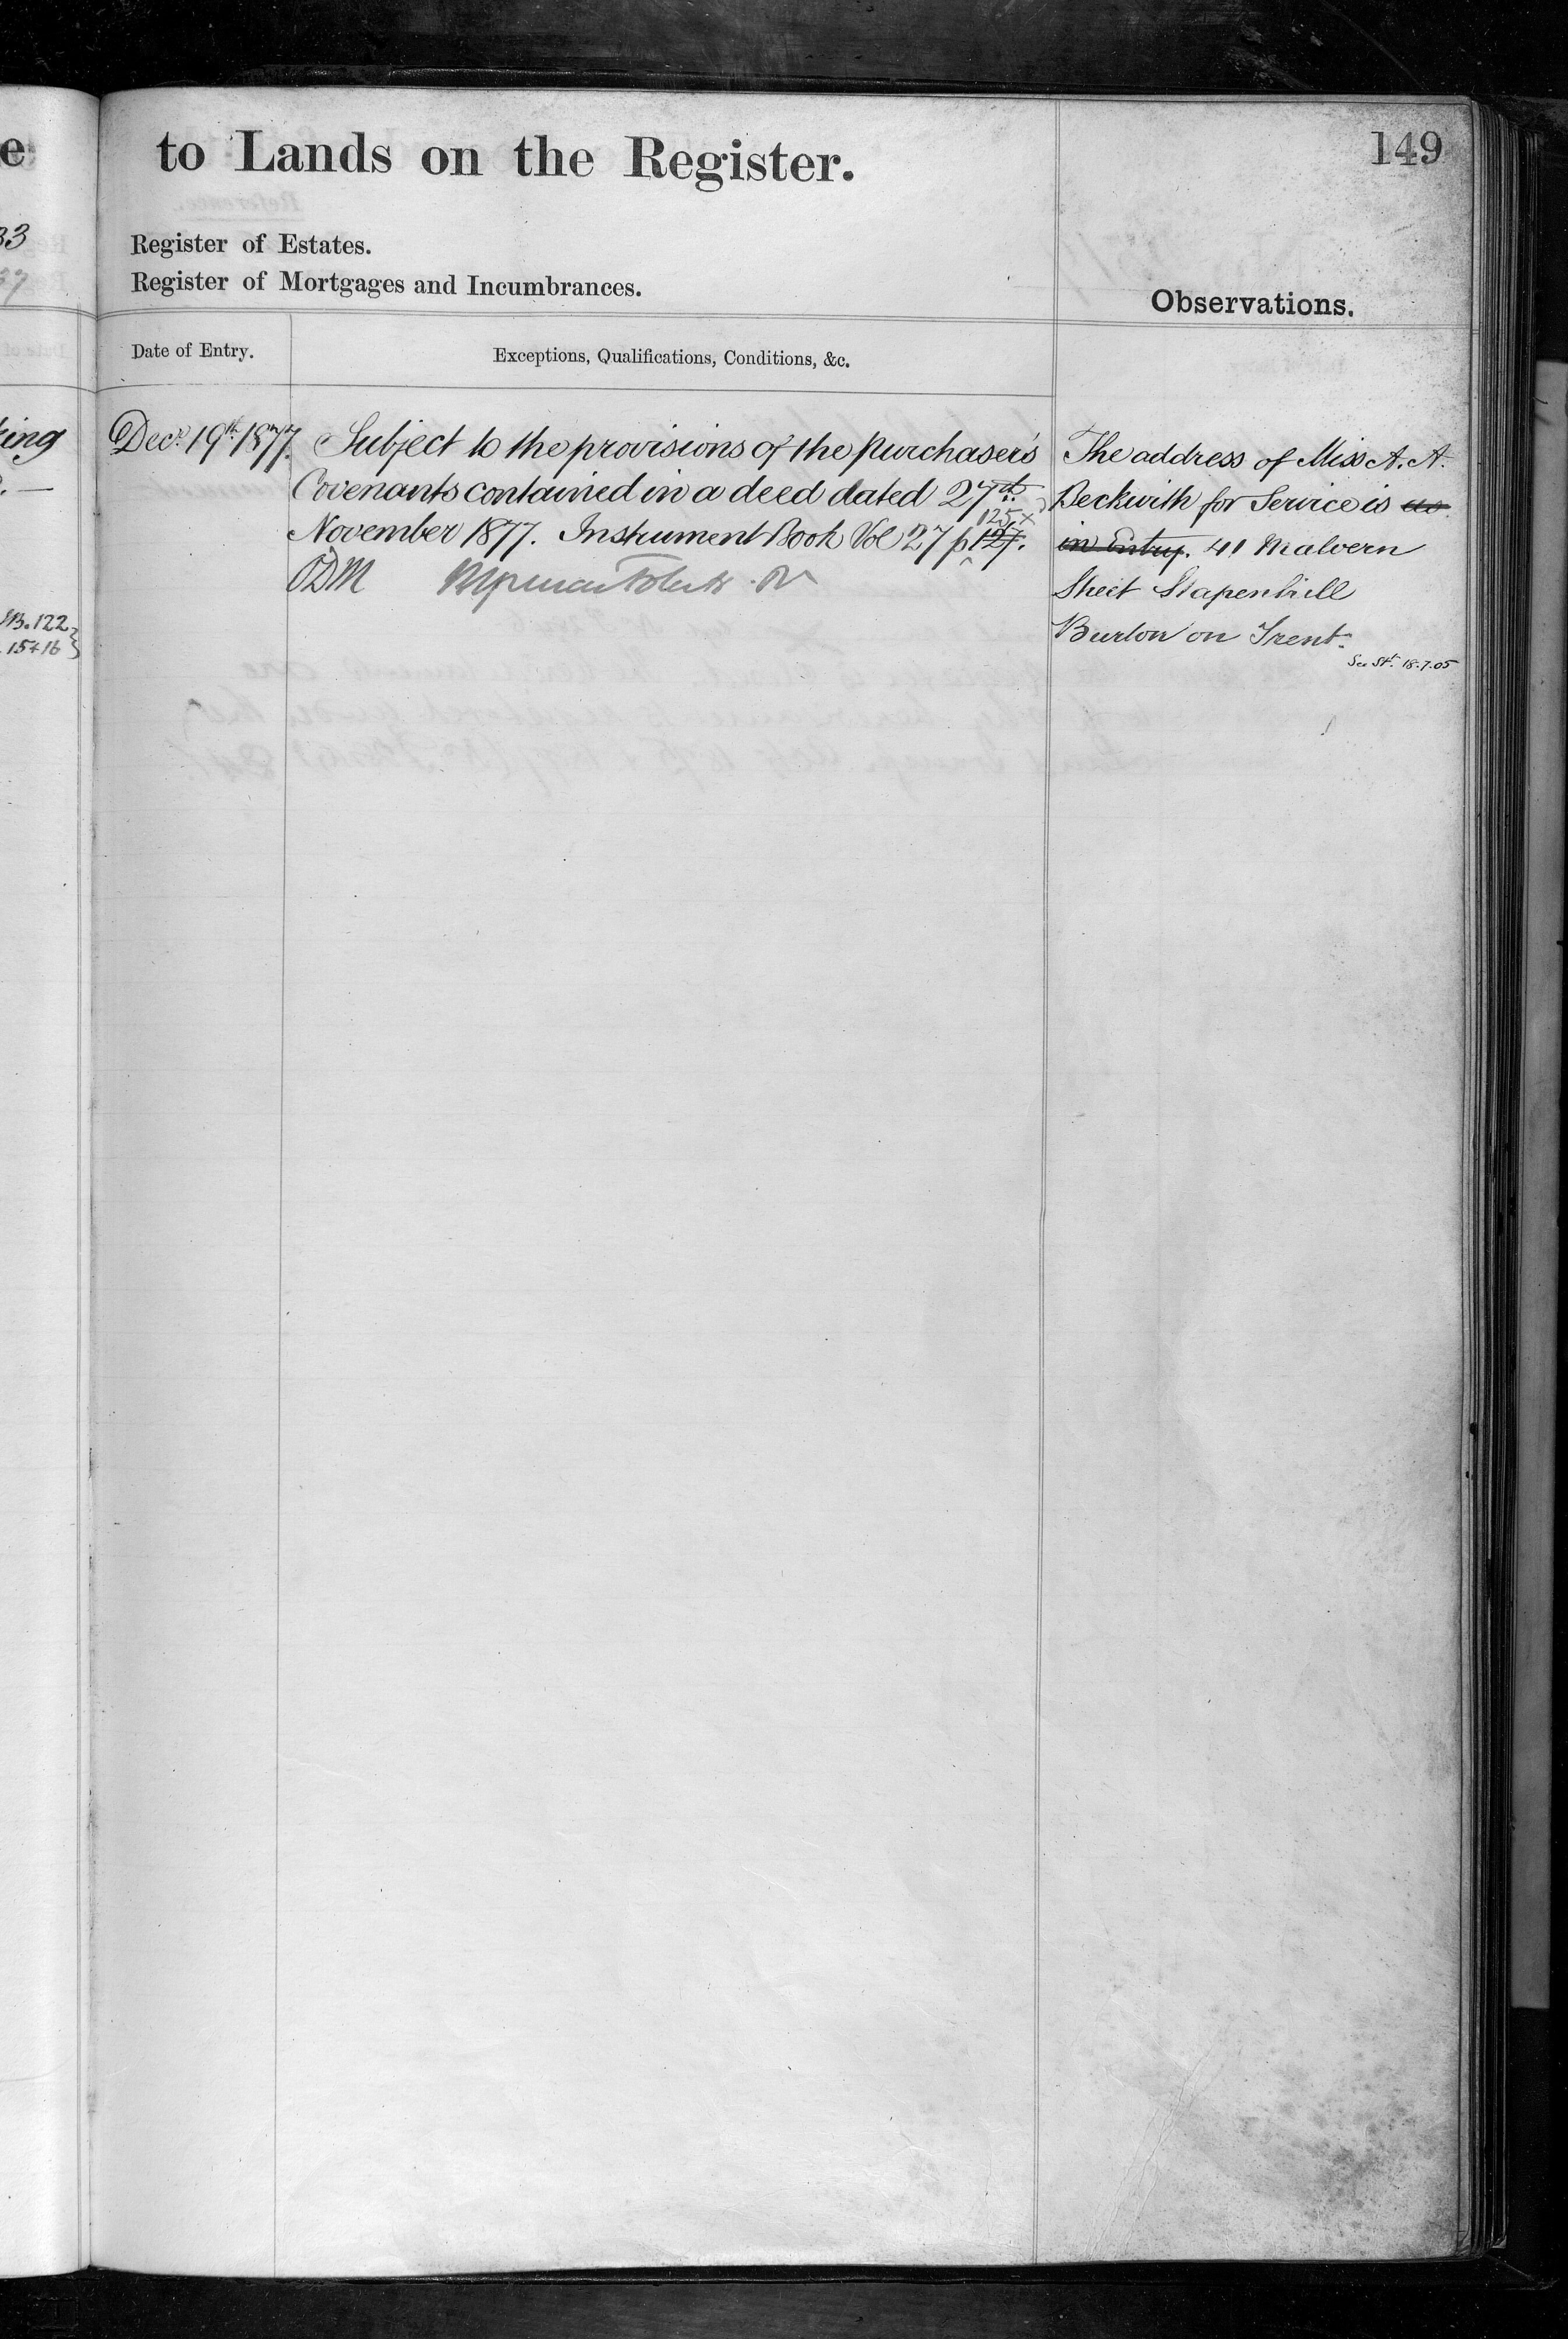 e
33
37
king
B. 122
15+16
to Lands on the Register.
149
Register of Estates.
Register of Mortgages and Incumbrances.
Observations.
Date of Entry.
Exceptions, Qualifications, Conditions, &c.
Decr. 19th 1877.
Subject to the provisions of the purchaser's
Covenants contained in a deed dated 27th
125
November 1877. Instrument Book Vol 27 p 127.
ODM
The address of Miss A. A.
Beckwith for Service is as
in Entry. 41 Malvern
Street Stapenhill
Burton on Trent.
See St. 18.7.05